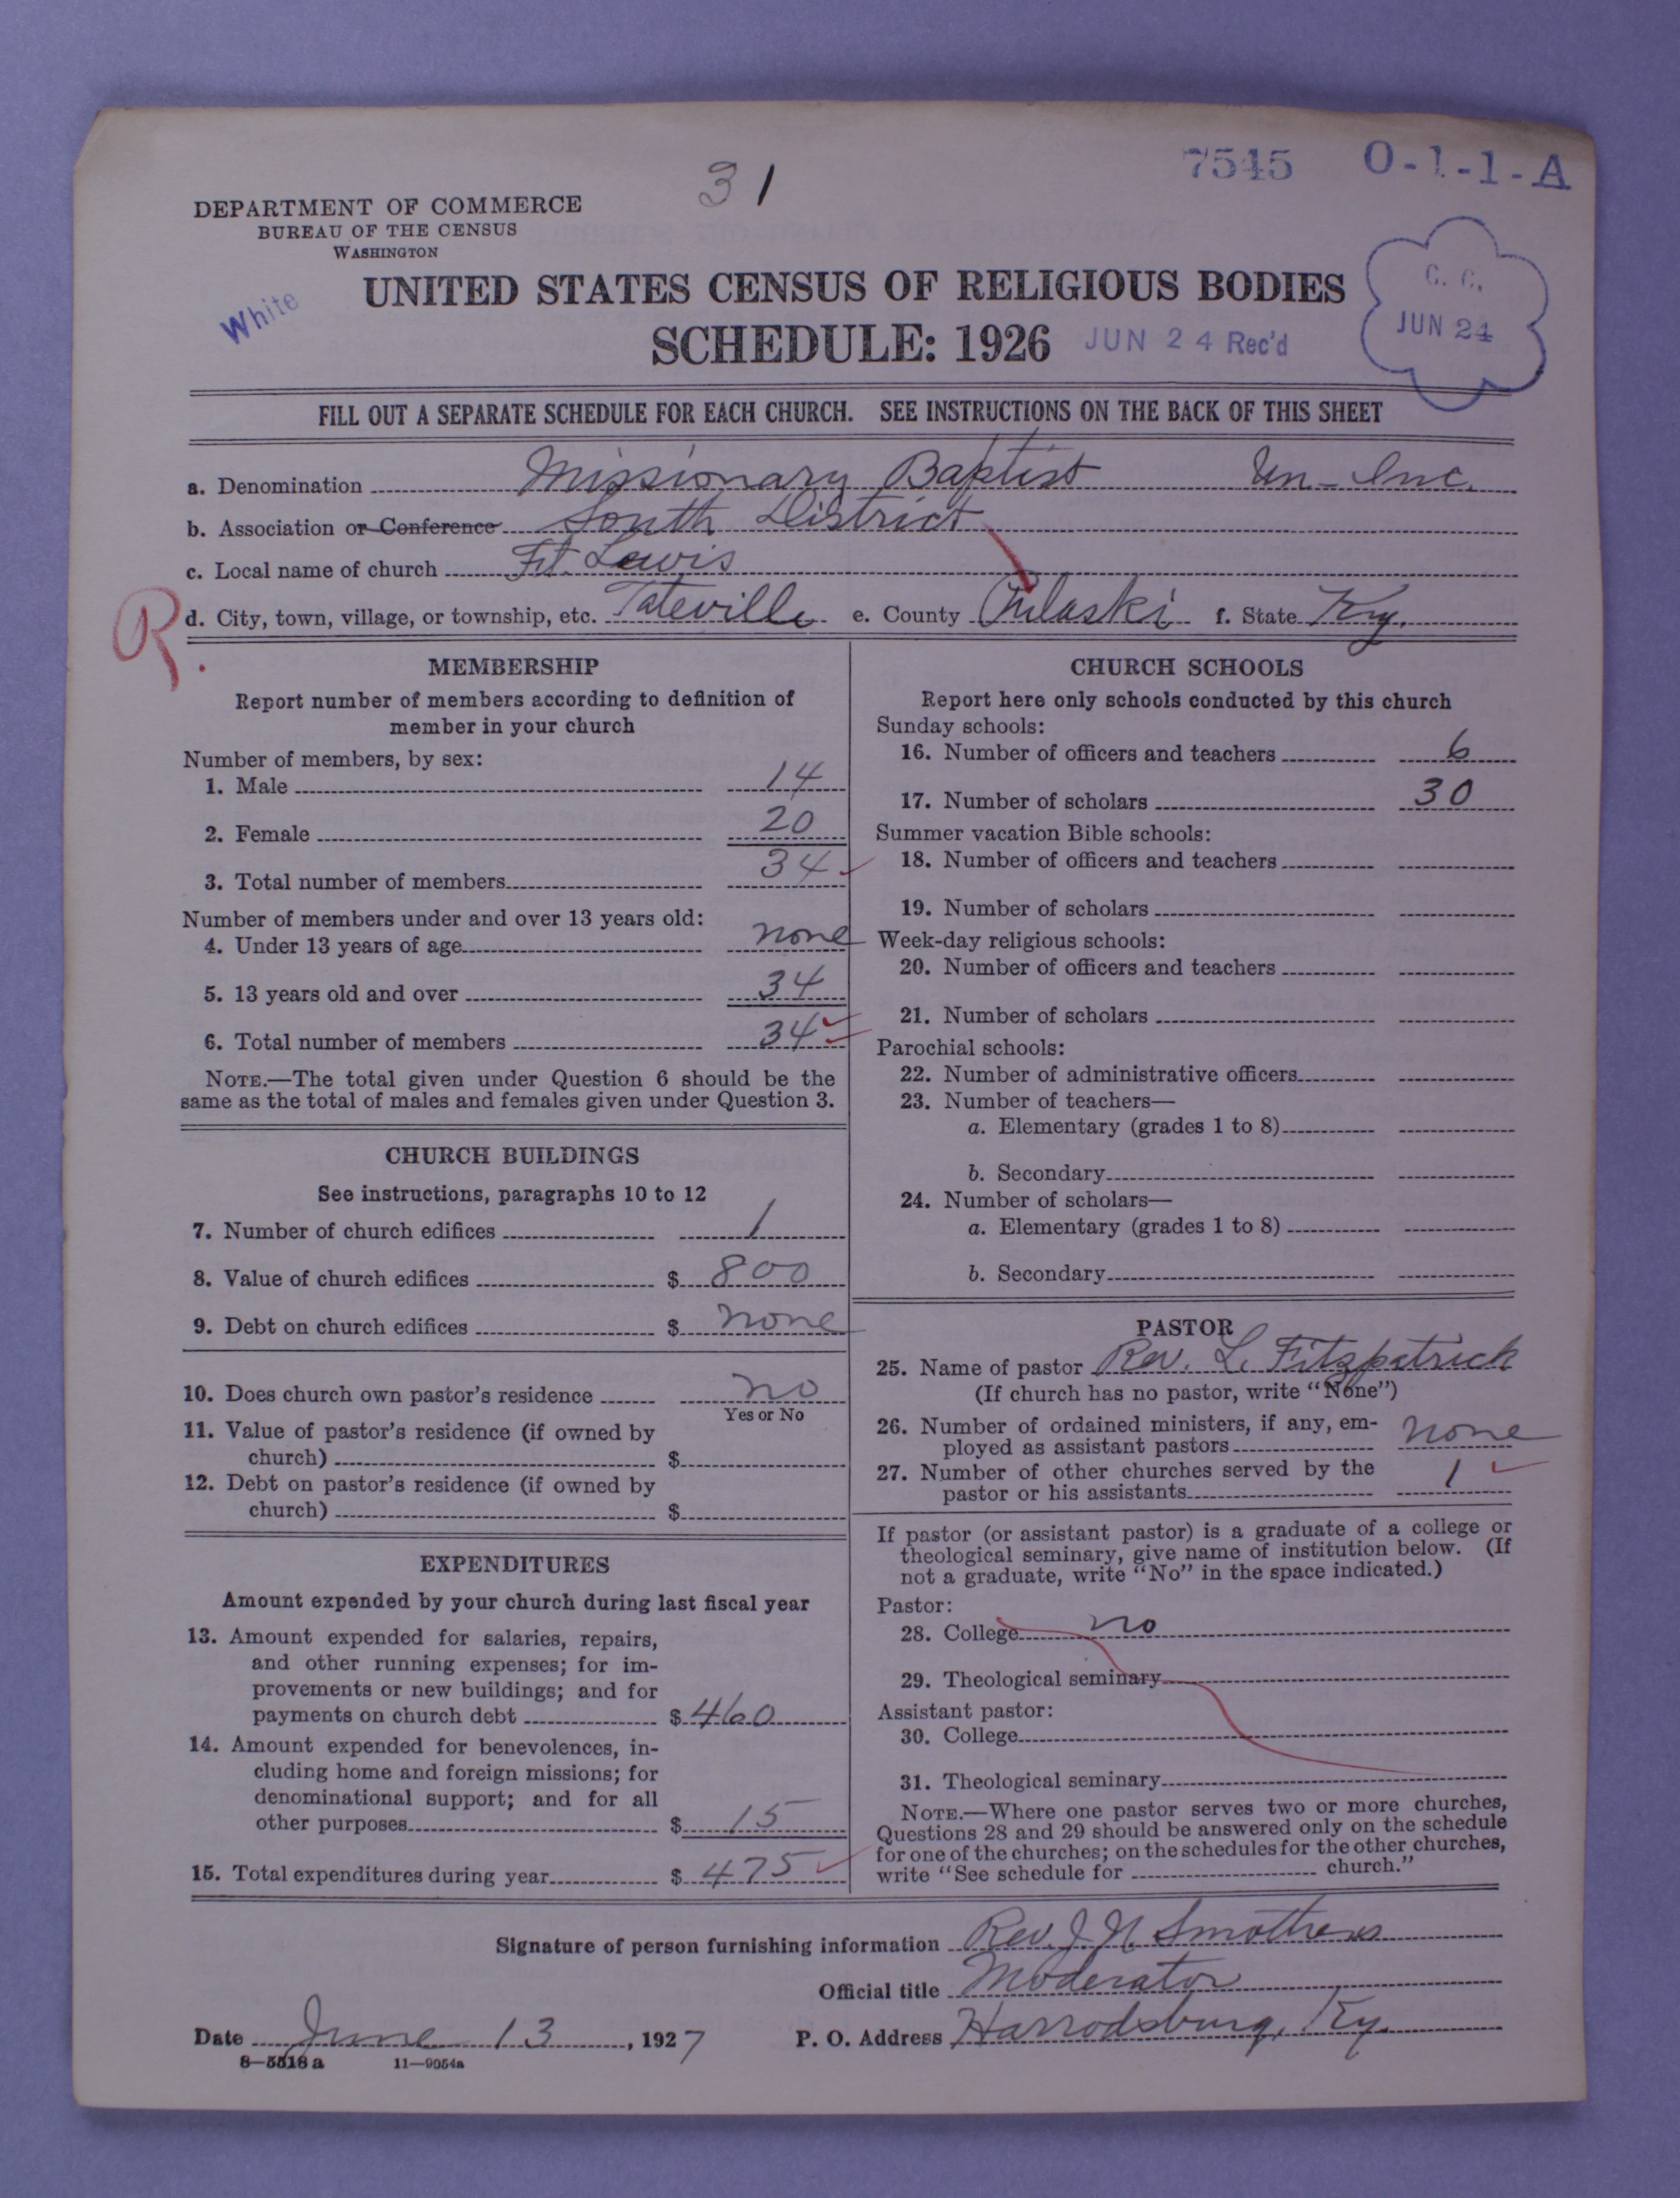 31
7545 O-1-1-A
DEPARTMENT OF COMMERCE
BUREAU OF THE CENSUS
WASHINGTON
White
UNITED STATES CENSUS OF RELIGIOUS BODIES
SCHEDULE: 1926
JUN 24 Rec'd
C. C.
JUN 24
FILL OUT A SEPARATE SCHEDULE FOR EACH CHURCH. SEE INSTRUCTIONS ON THE BACK OF THIS SHEET
a. Denomination Missionary Baptist Un-Inc.
b. Association or Conference South District
c. Local name of church Ft. Lewis
R.
d. City, town, village, or township, etc. Tateville e. County Pulaski f. State Ky.
MEMBERSHIP
Report number of members according to definition of
member in your church
Number of members, by sex:
1. Male 14
2. Female 20
3. Total number of members 34
Number of members under and over 13 years old:
4. Under 13 years of age none
5. 13 years old and over 34
6. Total number of members 34
NOTE.—The total given under Question 6 should be the
same as the total of males and females given under Question 3.
CHURCH BUILDINGS
See instructions, paragraphs 10 to 12
7. Number of church edifices 1
8. Value of church edifices $ 800
9. Debt on church edifices $ none
10. Does church own pastor's residence no
Yes or No
11. Value of pastor's residence (if owned by
church) $
12. Debt on pastor's residence (if owned by
church) $
EXPENDITURES
Amount expended by your church during last fiscal year
13. Amount expended for salaries, repairs,
and other running expenses; for im-
provements or new buildings; and for
payments on church debt $ 460
14. Amount expended for benevolences, in-
cluding home and foreign missions; for
denominational support; and for all
other purposes $ 15
15. Total expenditures during year $ 475
CHURCH SCHOOLS
Report here only schools conducted by this church
Sunday schools:
16. Number of officers and teachers 6
17. Number of scholars 30
Summer vacation Bible schools:
18. Number of officers and teachers
19. Number of scholars
Week-day religious schools:
20. Number of officers and teachers
21. Number of scholars
Parochial schools:
22. Number of administrative officers
23. Number of teachers—
a. Elementary (grades 1 to 8)
b. Secondary
24. Number of scholars—
a. Elementary (grades 1 to 8)
b. Secondary
PASTOR
25. Name of pastor Rev. L. Fitzpatrick
(If church has no pastor, write "None")
26. Number of ordained ministers, if any, em-
ployed as assistant pastors none
27. Number of other churches served by the
pastor or his assistants 1
If pastor (or assistant pastor) is a graduate of a college or
theological seminary, give name of institution below. (If
not a graduate, write "No" in the space indicated.)
Pastor:
28. College no
29. Theological seminary
Assistant pastor:
30. College
31. Theological seminary
NOTE.—Where one pastor serves two or more churches,
Questions 28 and 29 should be answered only on the schedule
for one of the churches; on the schedules for the other churches,
write "See schedule for church."
Signature of person furnishing information Rev. J. N. Smothers
Official title Moderator
Date June 13, 1927 P. O. Address Harrodsburg, Ky.
8—5518 a 11—9054a